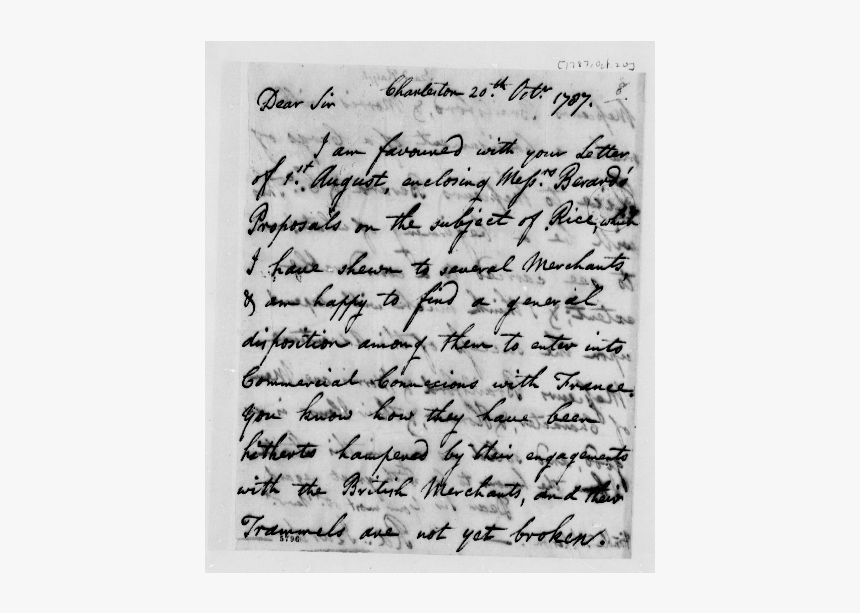 Charleston 20.th Octr. 1787.
Dear Sir
I am favoured with your Letter
of 1.st August, enclosing Messrs. Berards'
Proposals on the subject of Rice, which
I have shewn to several Merchants
& am happy to find a general
disposition among them to enter into
Commercial Connecions with France.
You know how they have been
hitherto hampered by their engagements
with the British Merchants, and their
Trammels are not yet broken.
5796